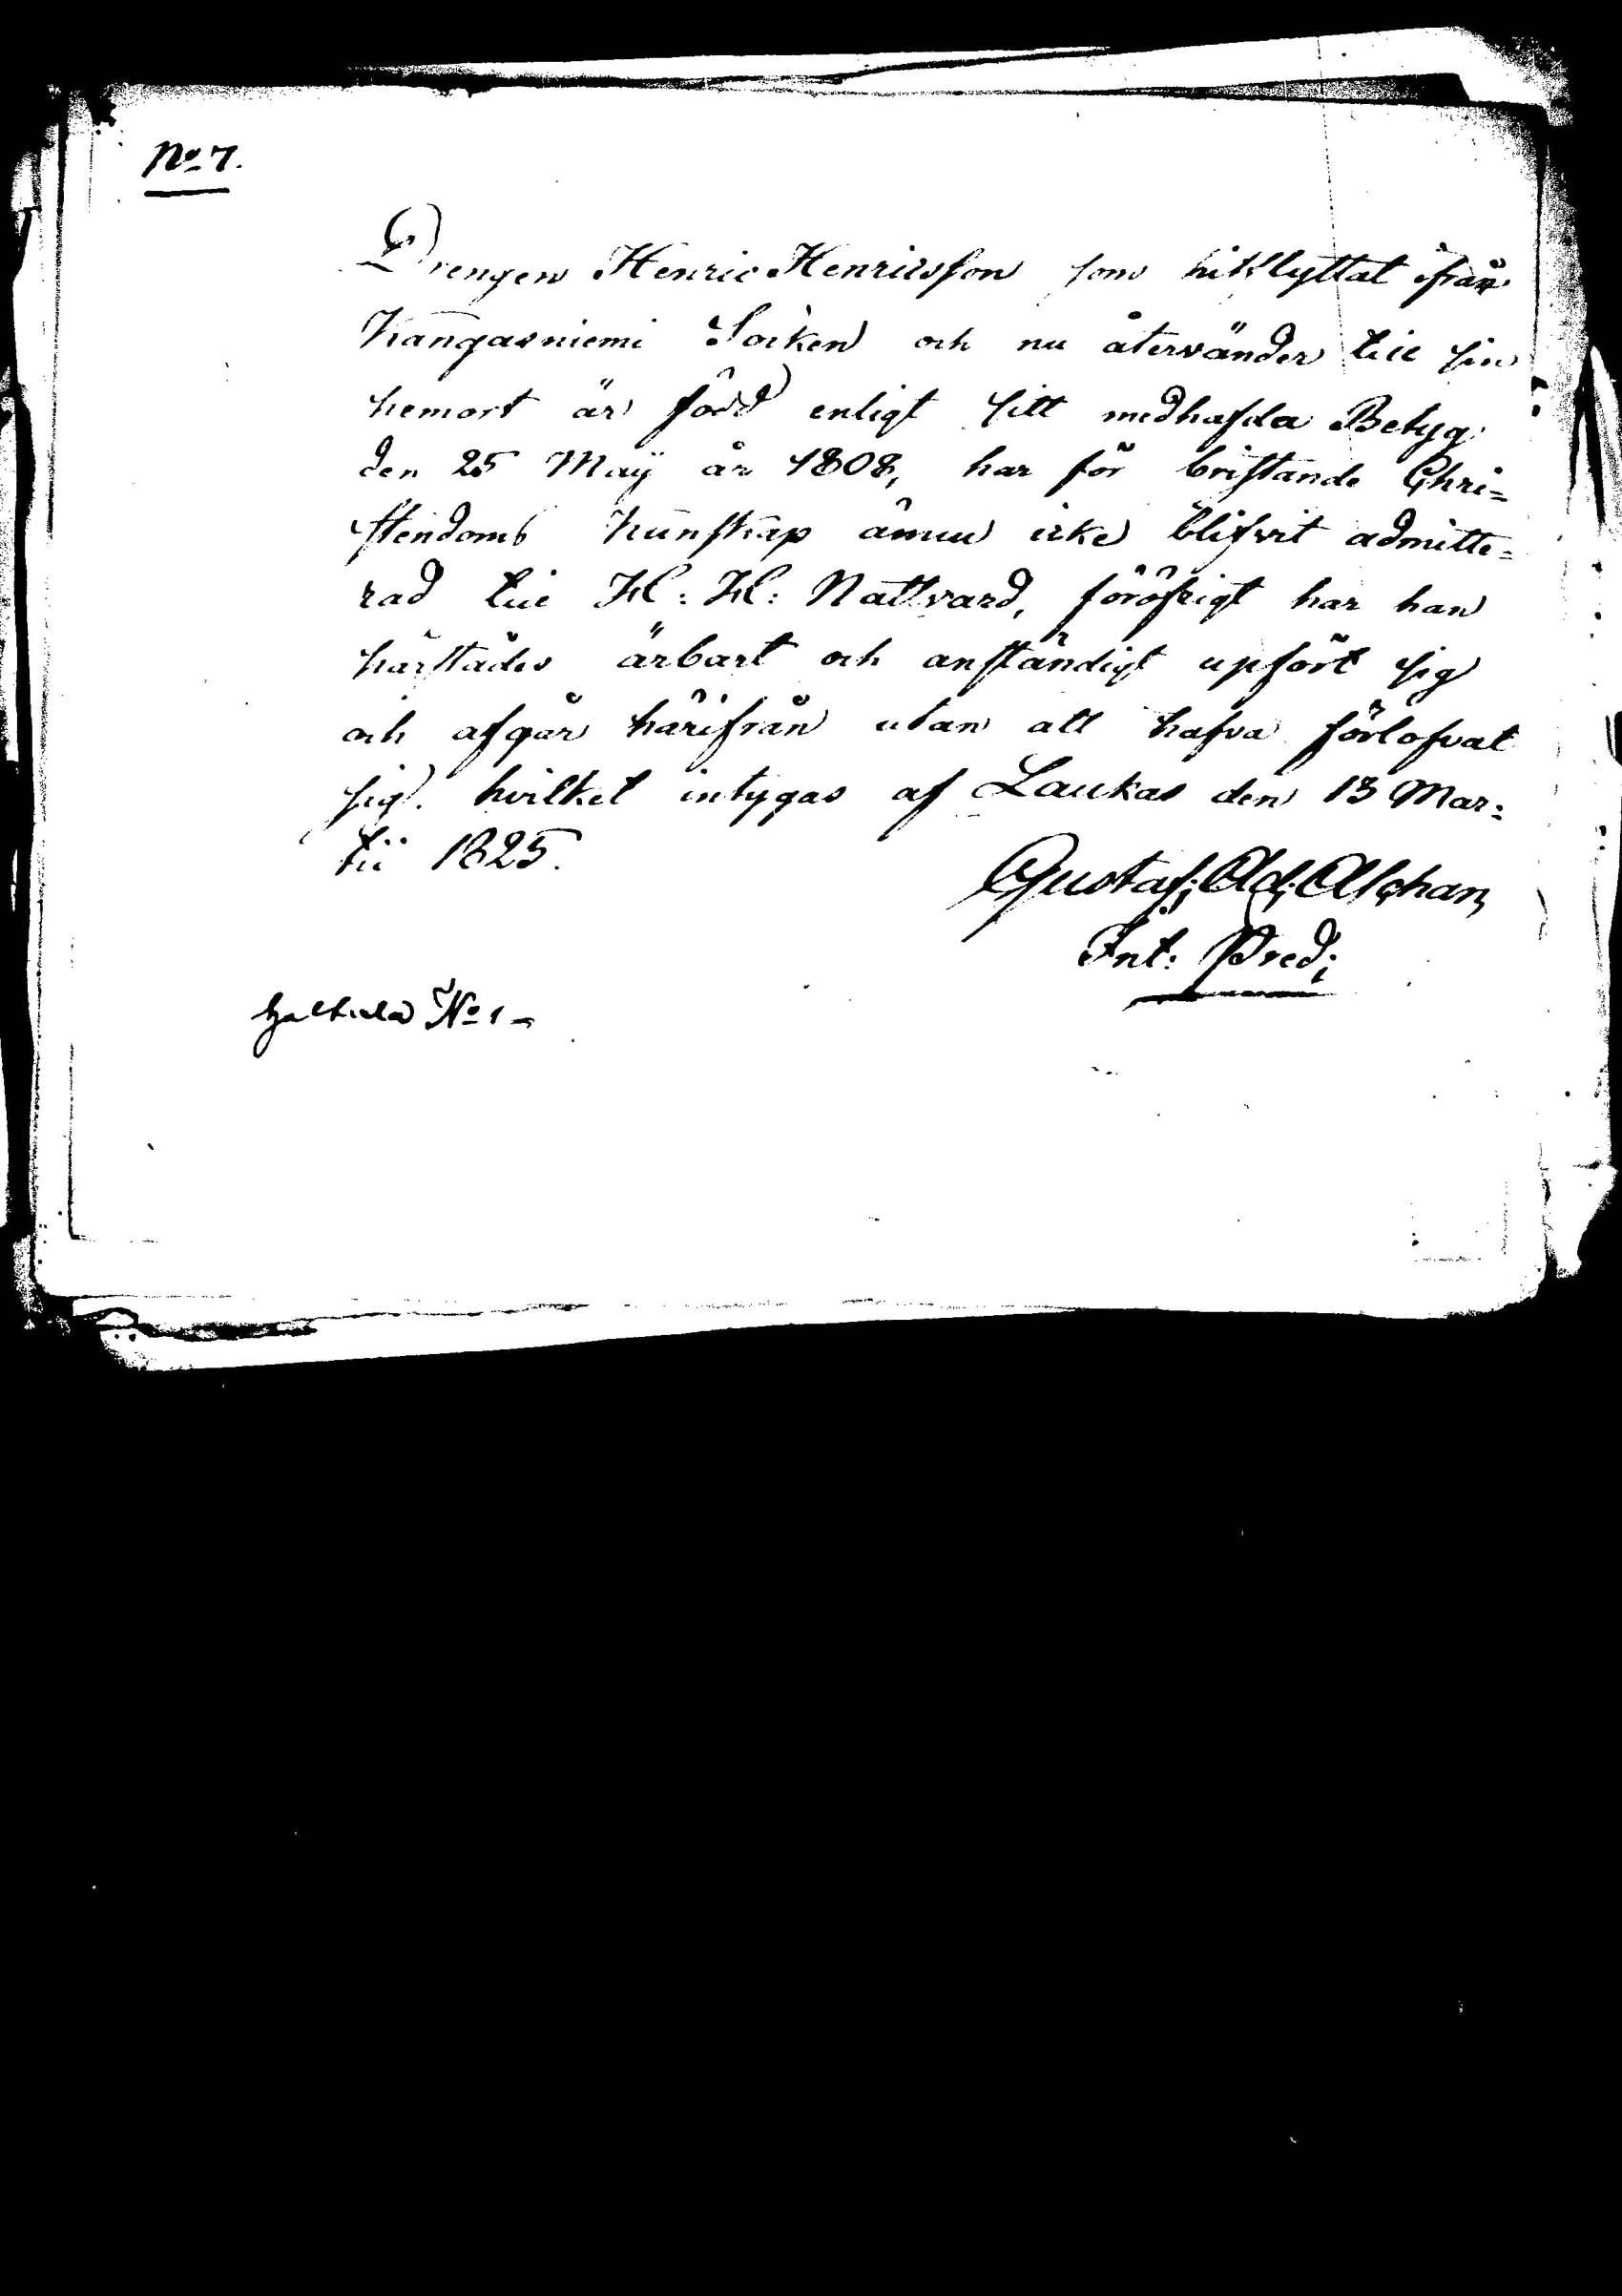 No 7.
Drengen Henric Henricsson som hitflyttat ifrån
Kangasniemi Socken och nu återvänder till sin
hemort är född enligt sitt medhafda Betyg
den 25 Maÿ år 1808, har för bristande Chri=
stendoms Kunskap ännu icke blifvit admitte=
rad till H: H: Nattvard, föröfrigt har han
härstädes ärbart och anständigt upfört sig
och afgår härifrån utan att hafva förlofvat
sig. hvilket intygas af Laukas den 13 Mar=
tii 1825.
Gustaf: Ad: Alchan
Int: Pred:
No 1